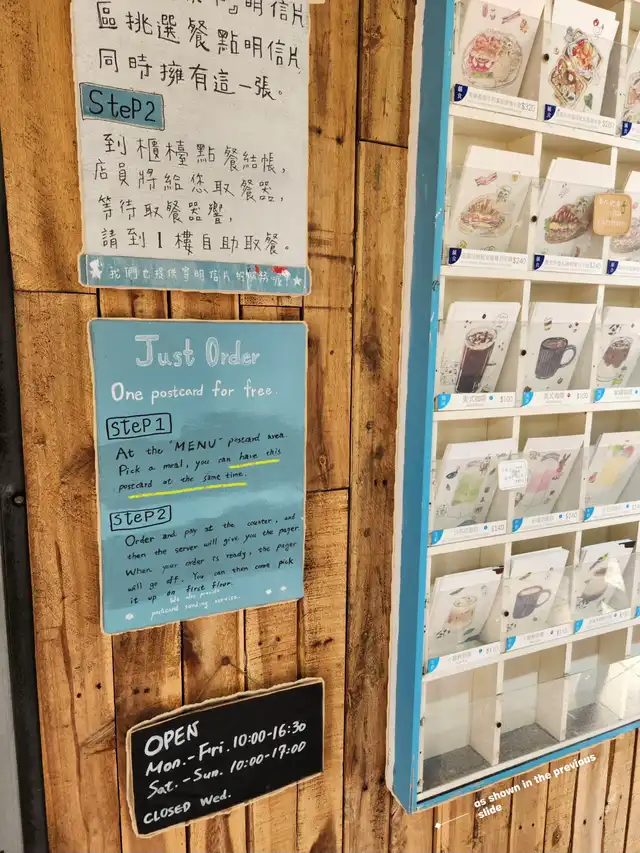 明信片
區挑選餐點明信片
同時擁有這一張。
SteP2
到櫃檯點餐結帳,
店員將給您取餐器,
等待取餐器響,
請到1樓自助取餐。
我們也提供寄明信片的服務
Just Order
One postcard for free.
SteP1
At the "MENU" postcard area.
Pick a meal, you can have this
postcard at the same time.
SteP2
Order and pay at the counter, and
then the server will give you the pager.
When your order is ready, the pager
will go off. You can then come pick
it up on first floor.
We also provide
postcard sending service.
OPEN
Mon.-Fri. 10:00-16:30
Sat.-Sun. 10:00-17:00
CLOSED Wed.
$320
$240
$240
美式咖啡 $100
$100
$140
$140
as shown in the previous
slide